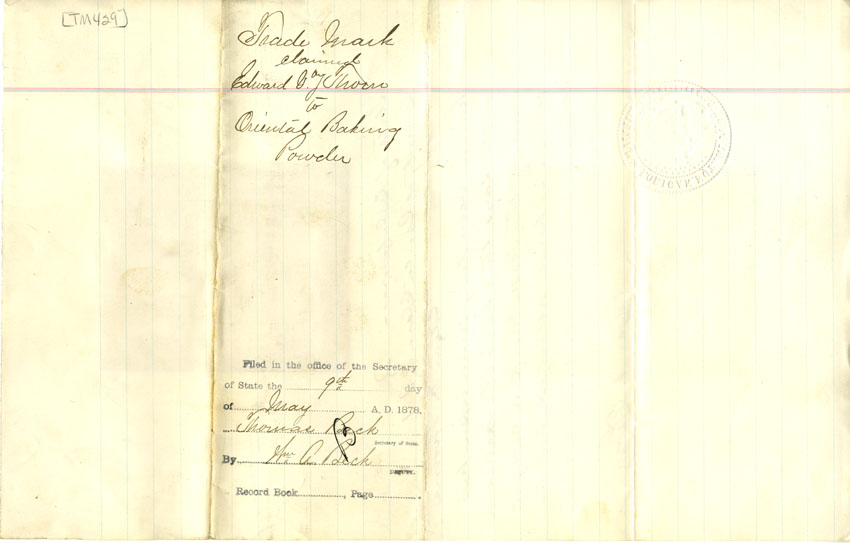 [TM429]
Trade Mark
claimed
by
Edward G. Thorn
to
Oriental Baking
Powder
Filed in the office of the Secretary
of State the 9th day
of May A. D. 1878.
Thomas Beck
Secretary of State.
By Wm A. Beck
Deputy.
Record Book , Page .